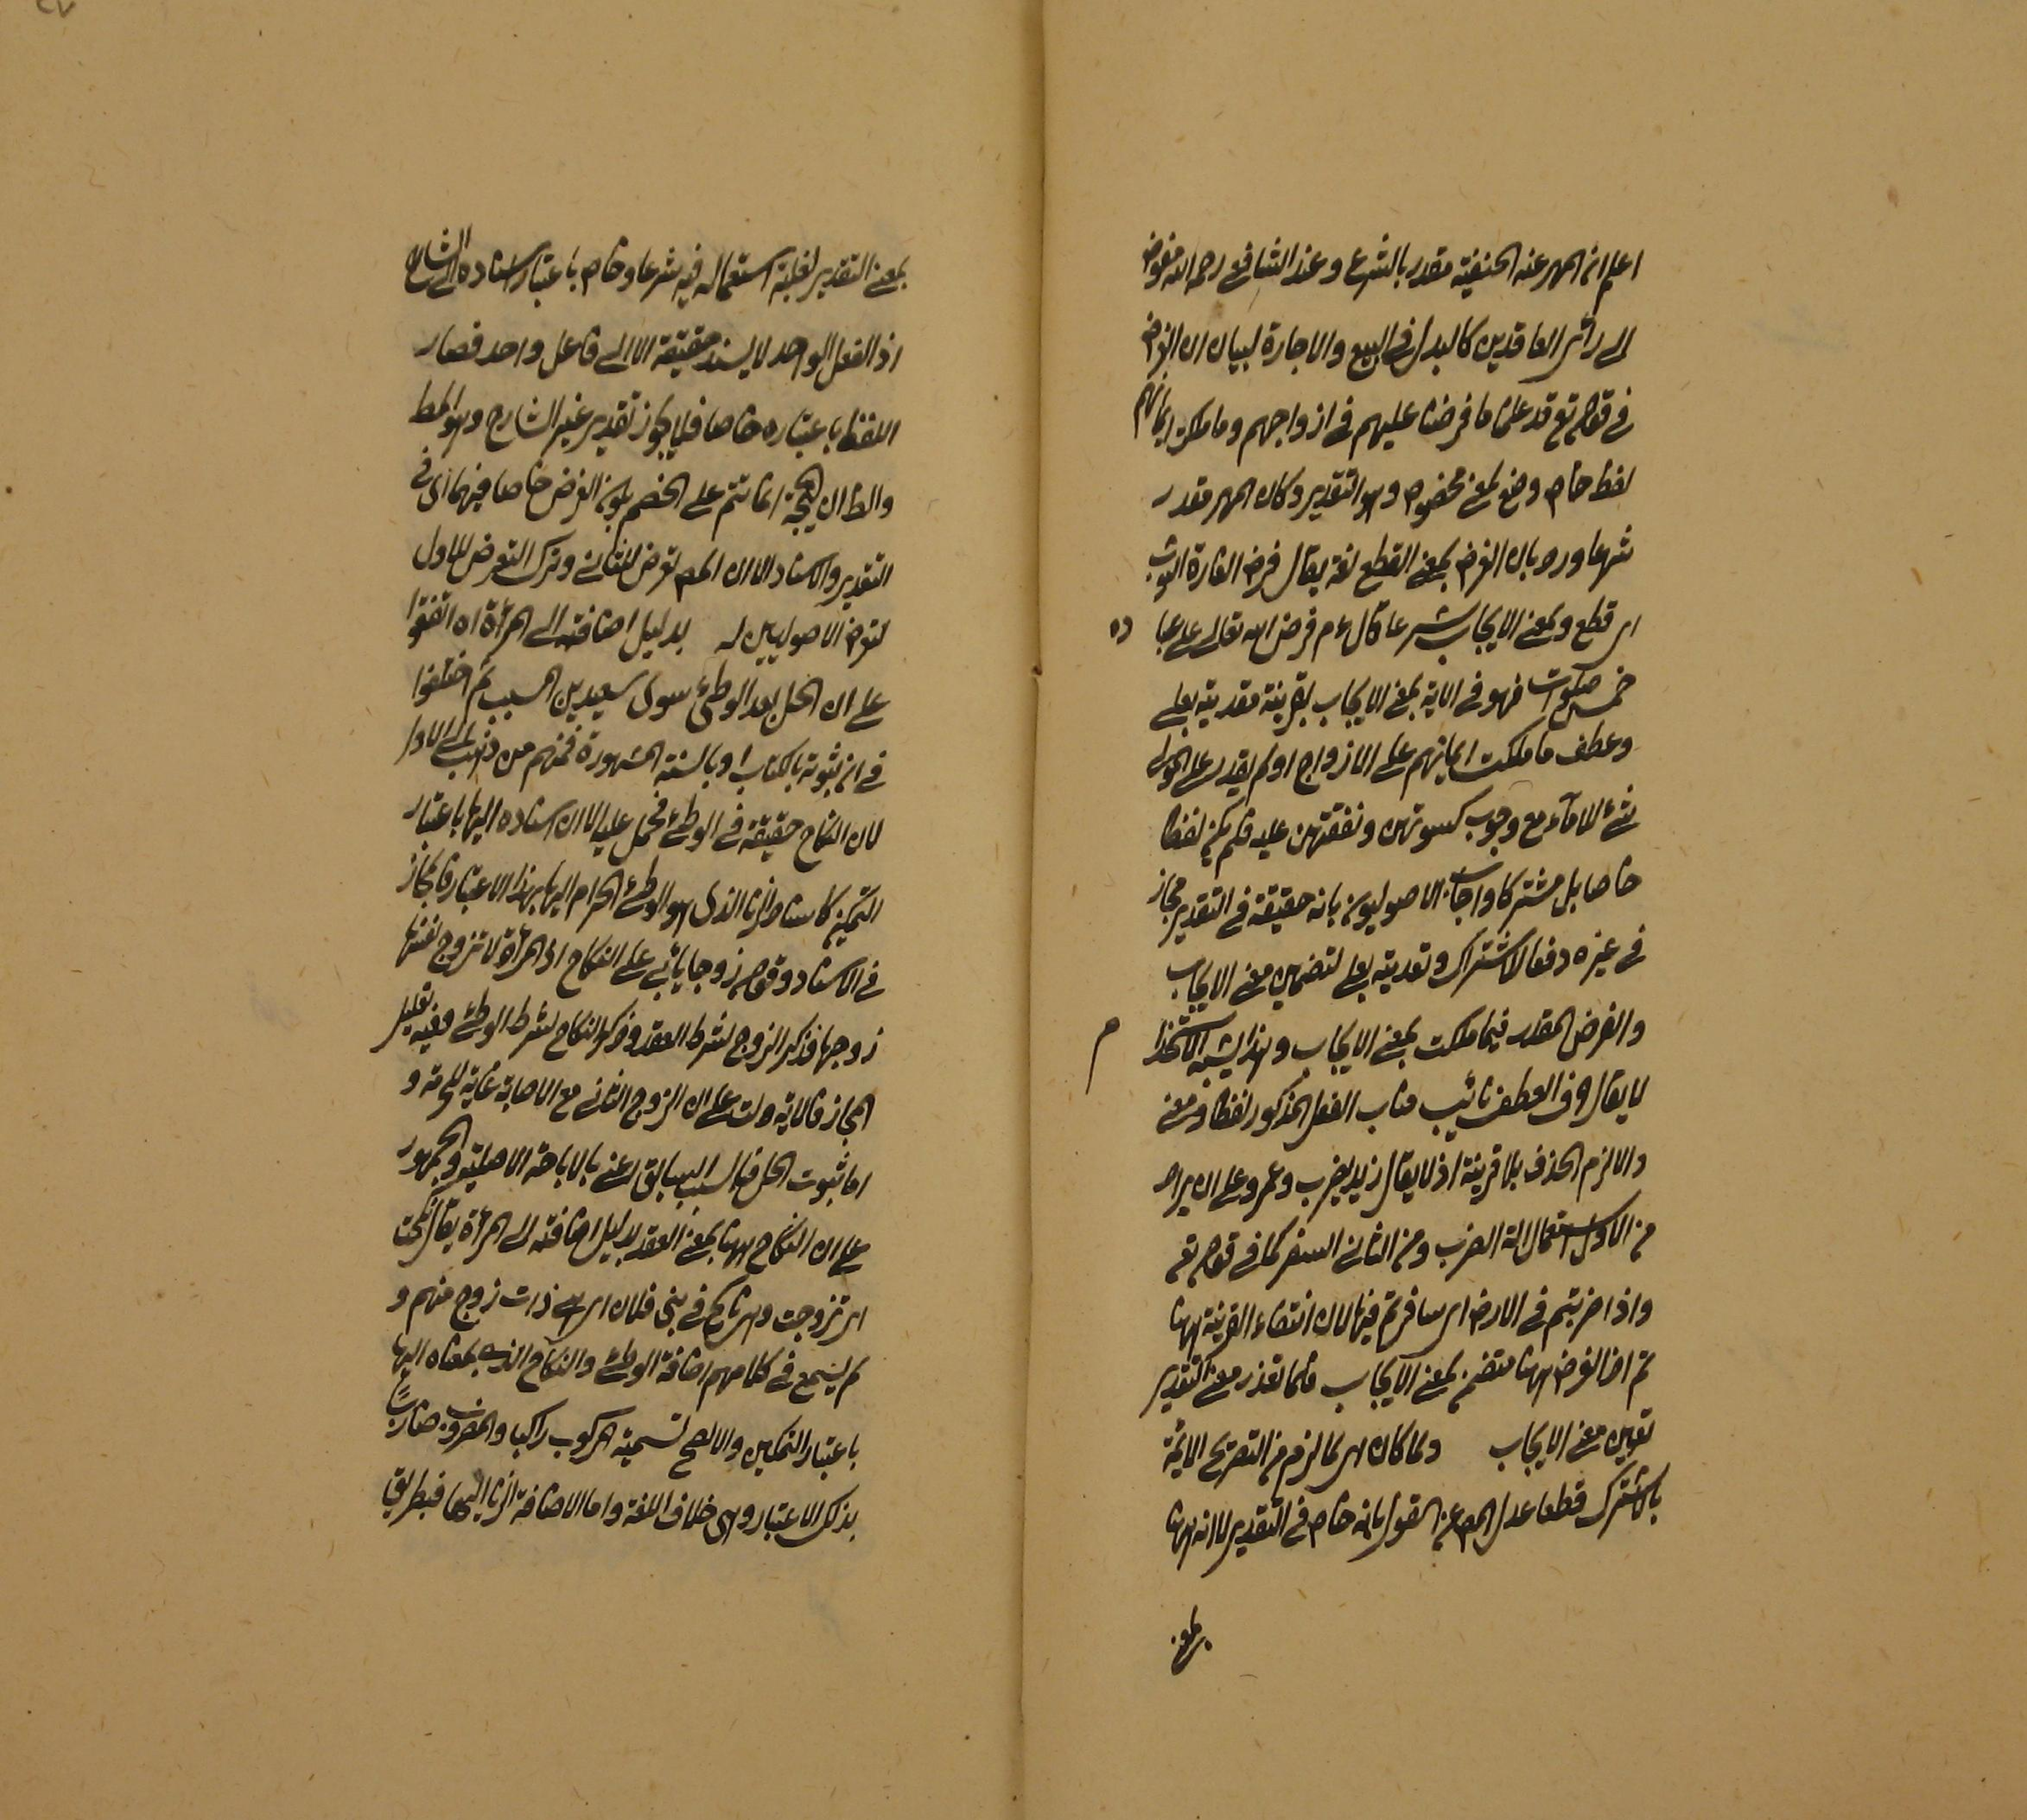 اعلم ان المهر عند الحنفية مقدر بالشرع وعند الشافعى رحمه الله مفوض
الى رائ العاقدين كالبدل فى البيع والاجارة لبيان ان الفرض
فى قوله تع قد علمنا ما فرضنا عليهم فى ازواجهم وما ملكت ايمانهم
لفظ خاص وضع لمعنى مخصوص وهو التقدير وكان المهر مقدر
شرعا ورد بان الفرض بمعنى القطع لغة يقال فرض الفارة الثوب
اى قطع وبمعنى الايجاب شرعا قال ءم فرض الله تعالى على عبا ده
خمس صلوات فهو فى الاية بمعنى الايجاب بقرينة مقدرة بعلى
وعطف ما ملكت ايمانهم على الازواج اذ لم يقدر على المولى
شئ للاماء مع وجوب كسوتهن ونفقتهن عليه فلم يكن لفظا
خاصا بل مشتركا واجاب الاصوليون بانه حقيقة فى التقدير مجاز
فى غيره دفعا للاشتراك وتعديته بعلى لتضمين معنى الايجاب
والفرض المقدر فيما ملكت بمعنى الايجاب وهذا يشبه الاستخدام
لا يقال حرف العطف نائب مناب الفعل المذكور لفظا ومعنى
والا لزم الحذف بلا قرينة اذ لا يقال زيد يضرب وعمرو على ان يراد
من الاول استعمال الة الضرب ومن الثانى السفر كما فى قوله تع
واذا ضربتم فى الارض اى سافرتم فيها لان انتفاء القرينة ههنا
ثم اذ الفرض ههنا متضمن لمعنى الايجاب فلما تعذر معنى التقدير
تعين معنى الايجاب ولما كان لهم لما لزم من التصريح الائمة
بالاشتراك قطعا عدل المص عن القول بانه خاص فى التقدير لا انه ههنا
بمعنى
بمعنى التقدير لغلبة استعماله فيه شرعا وخاص باعتبار اسناده الى الشارع
اذ الفعل الواحد لا يسند حقيقة الا الى فاعل واحد فصار
اللفظ باعتباره خاصا فلا يجوز تقدير غير الشارع وهو المط
والظ ان الحجة انما تتم على الخصم بكون الفرض خاصا فيهما اى فى
التقدير والاسناد الا ان المص تعرض للثانى وترك التعرض للاول
لتعرض الاصوليين له بدليل اضافته الى المرأة اه اتفقوا
على ان الحل بعد الوطئ سوى سعيد بن المسيب ثم اختلفوا
فى ان ثبوته بالكتاب او بالسنة المشهورة فمنهم من ذهب الى الاول
لان النكاح حقيقة فى الوطئ فحمل عليه الا ان اسناده اليها باعتبار
التمكين كاسناد الزنا الذى هو الوطئ الحرام اليها بهذا الاعتبار فالمجاز
فى الاسناد وقوله زوجا يأبى على النكاح اذ المرأة لا تزوج نفسها
زوجها فذكر الزوج لشرط العقد وذكر النكاح لشرط الوطئ وفيه تقليل
المجاز فالاية دلت على ان الزوج الثانى مع الاصابة غاية للحرمة و
اما ثبوت الحل فبالسبب السابق اعنى بالاباحة الاصلية والجمهور
على ان النكاح ههنا بمعنى العقد بدليل اضافته الى المرأة يقال نكحت
اى تزوجت وهى ناكح فى بنى فلان اى هى ذات زوج منهم و
لم يسمع فى كلامهم اضافة الوطئ والنكاح الذى بمعناه اليها
باعتبار التمكين والا لصح تسمية المركوب راكبا والمضروب ضاربًا
بذلك الاعتبار وهى خلاف اللغة واما الاضافة الزنا اليها فبطريق